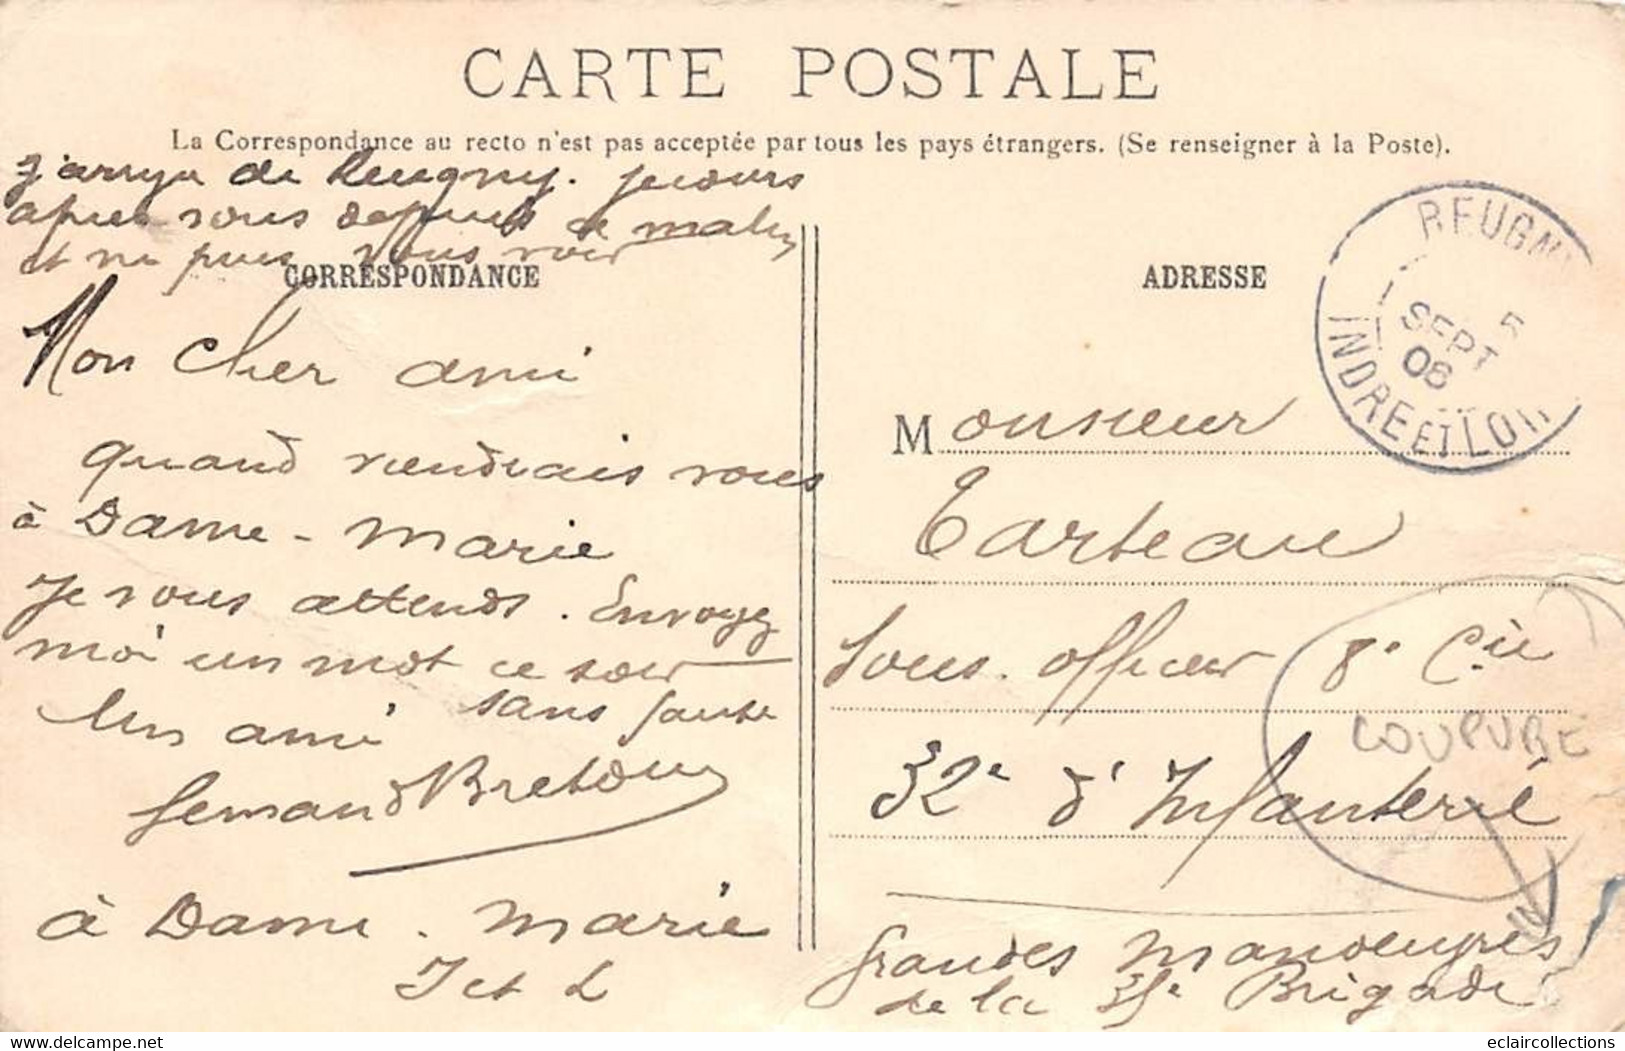 CARTE POSTALE
La Correspondance au recto n'est pas acceptée par tous les pays étrangers. (Se renseigner à la Poste).
j'arrive de Reugny. je cours
après vous depuis ce matin
et ne puis vous voir
CORRESPONDANCE
Mon cher ami
quand viendrais vous
à Dame-Marie
Je vous attends. Envoyez
moi un mot ce soir
sans faute
Un ami
Fernand Breton
à Dame-Marie
I et L
ADRESSE
REUGNY
5
SEPT
08
INDRE ET LOIR
Monsieur
Tarteau
Sous-officier 8e Cie
COUPURE
32e d'Infanterie
Grandes manoeuvres
de la Brigade
© Delcampe.net
eclaircollections